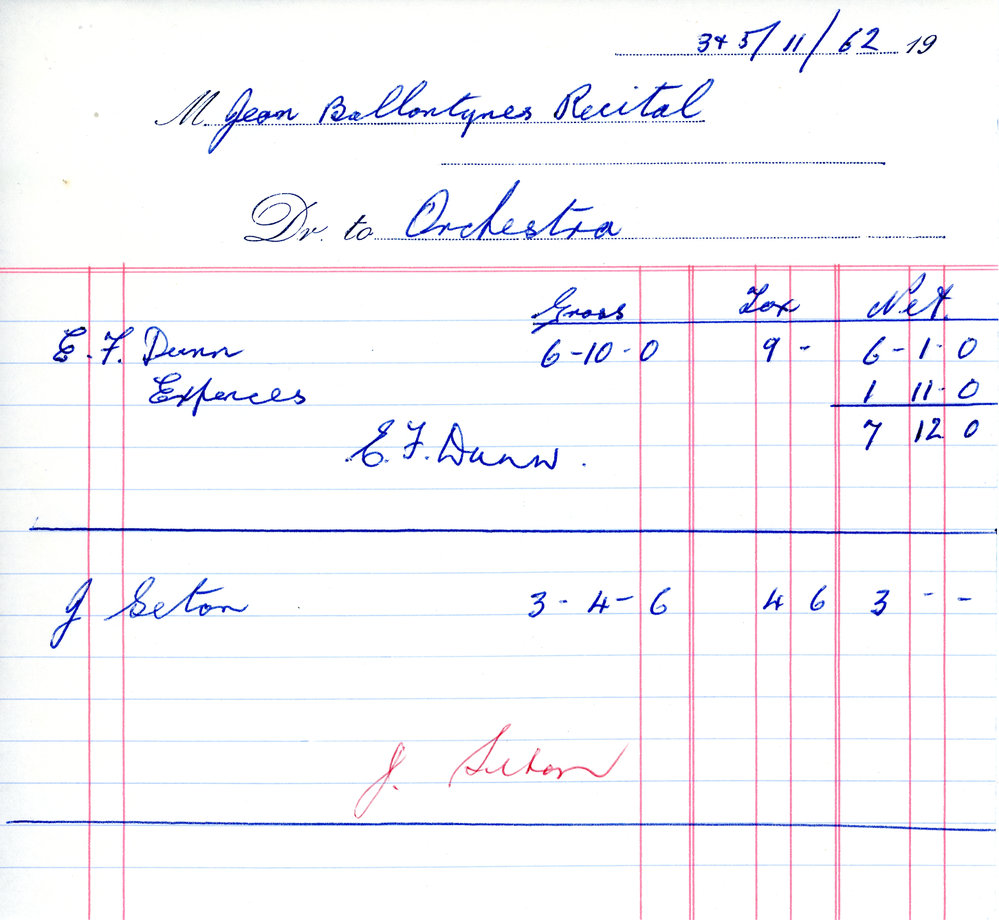 3+5/11/62 19
M Jean Ballantynes Recital
Dr. to Orchestra
Gross Tax Net.
E. F. Dunn 6-10-0 9- 6-1-0
Expences 1 11-0
E. F. Dunn. 7 12 0
J Seton 3-4-6 4 6 3 - -
J. Seton